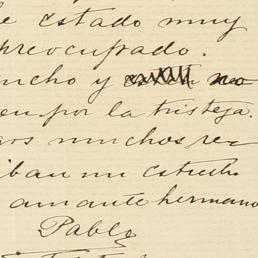 e estado muy
preocupado.
ncho y no
en por la tristeza.
aos muchos re-
iban un estrecho
amante hermano
Pablo